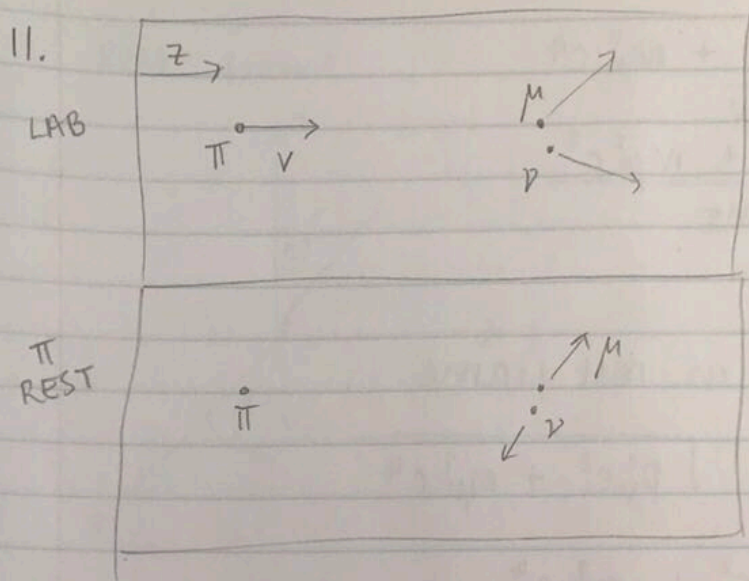 11.
z
LAB
π v
μ
ν
π
REST
π
μ
ν